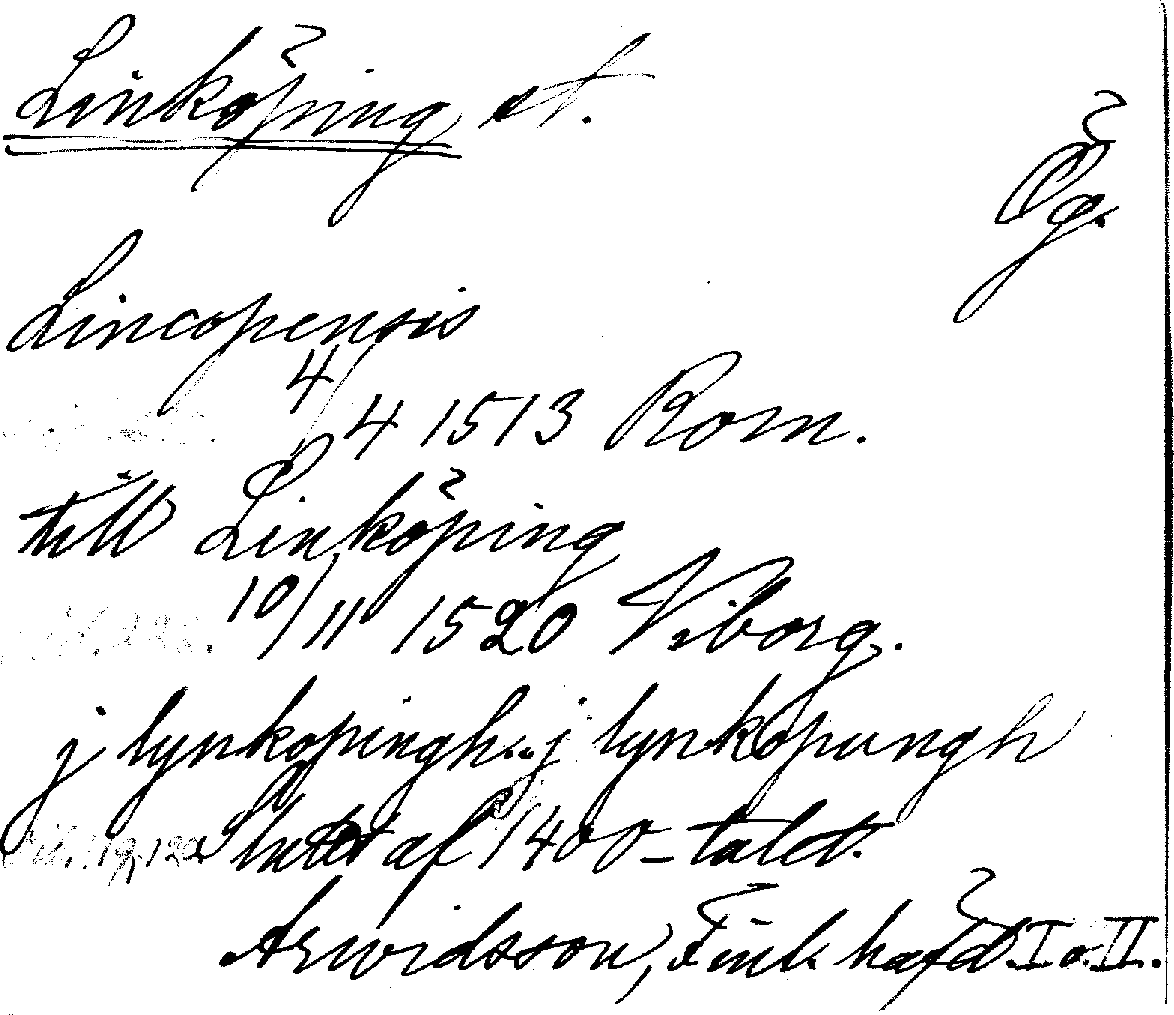 Linköping st.
Ög.
Lincopensis
4/4 1513 Rom.
till Linköping
10/11 1520 Viborg.
j lynkopingh.. j lynköpungh
slutet af 1400-talet.
Arwidsson, Finl. häfd. I o. II.